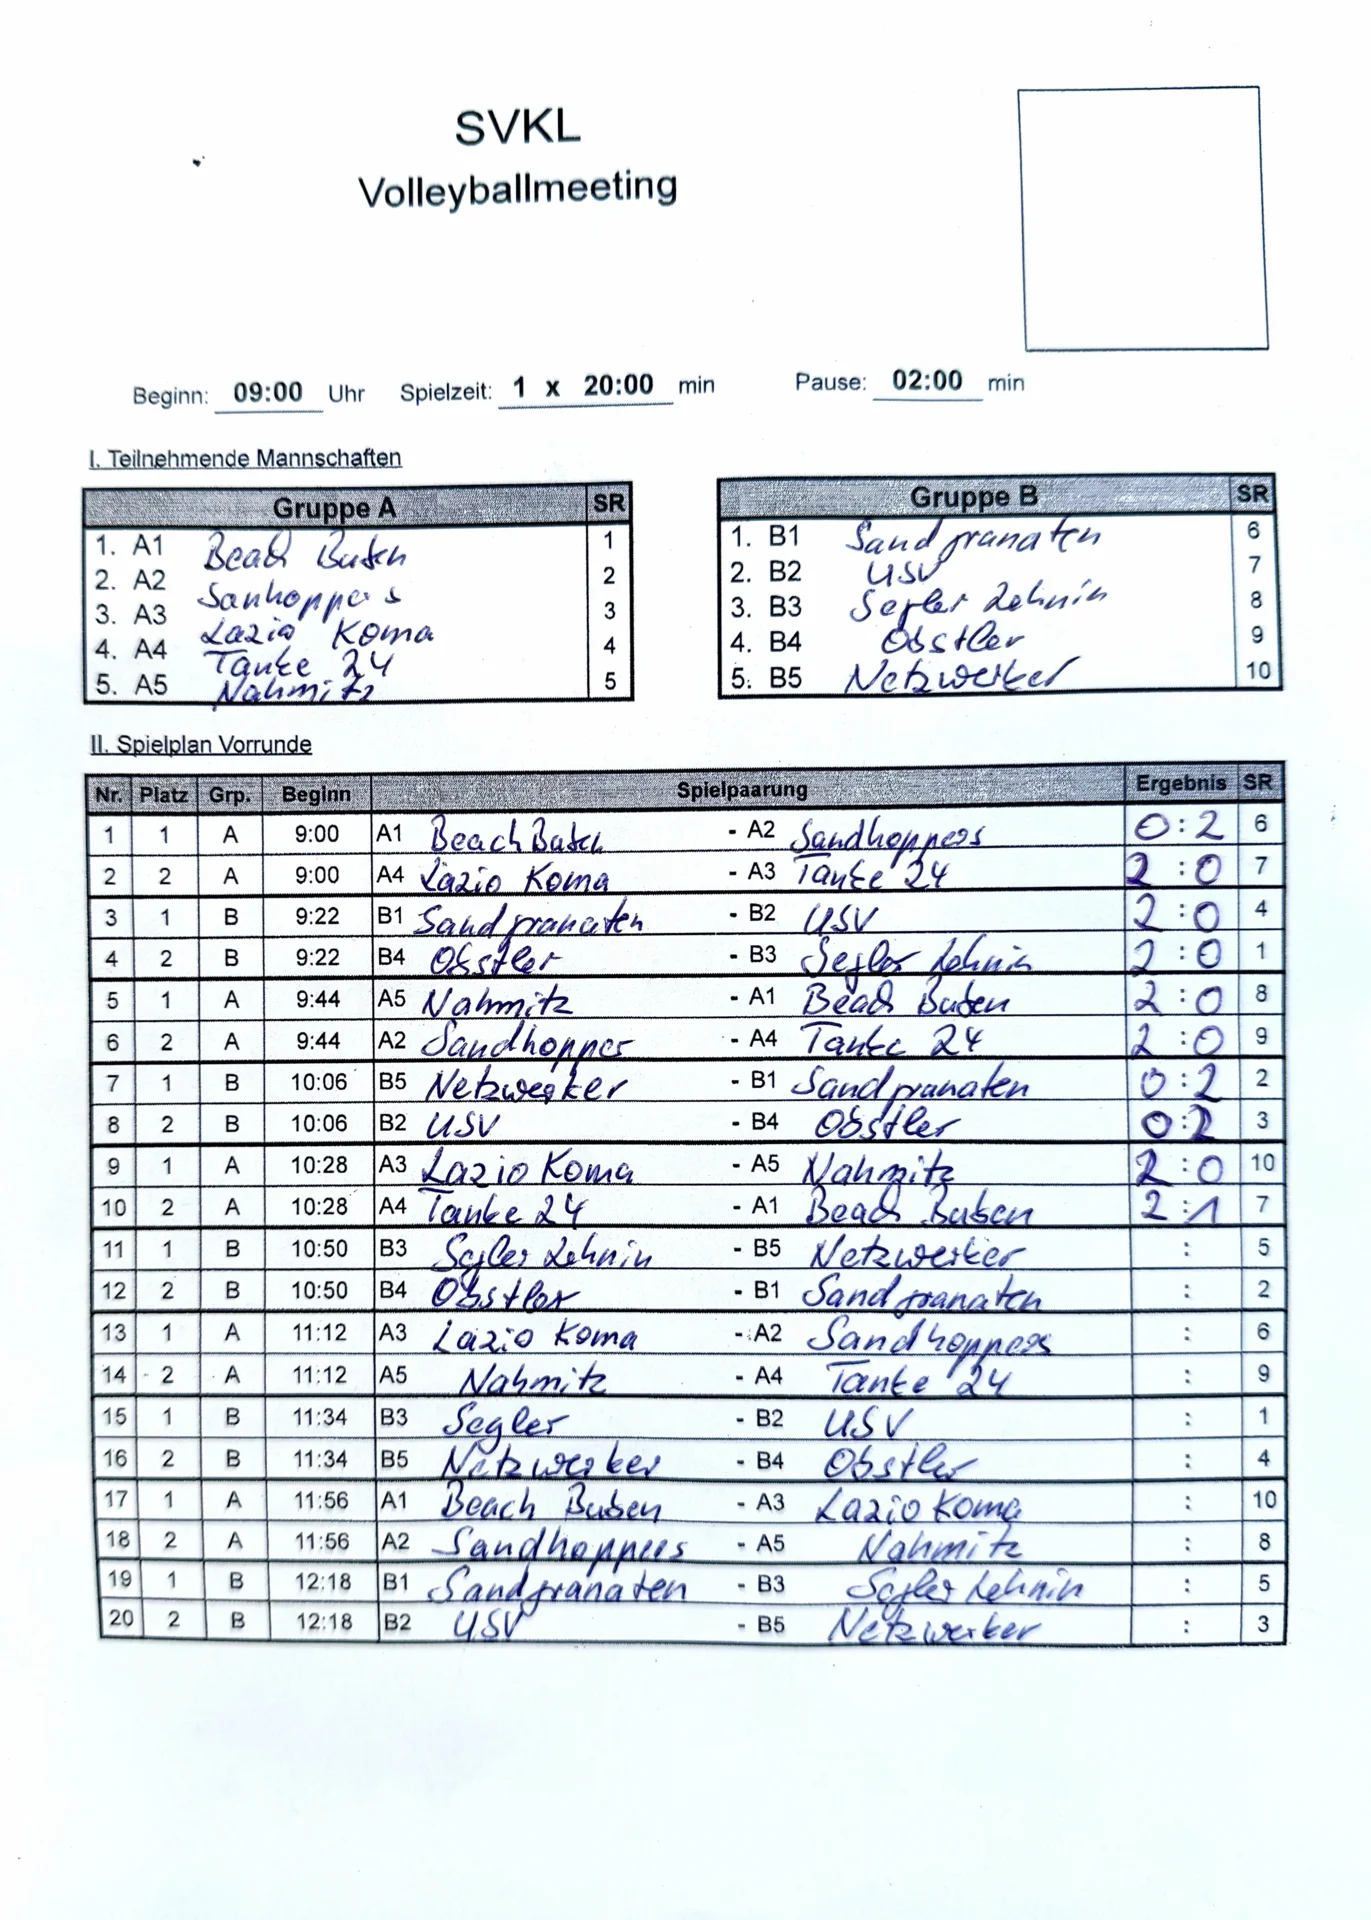 SVKL
Volleyballmeeting
Beginn: 09:00 Uhr Spielzeit: 1 x 20:00 min Pause: 02:00 min
I. Teilnehmende Mannschaften
Gruppe A SR Gruppe B SR
1. A1 Beach Buben 1 1. B1 Sandgranaten 6
2. A2 Sanhoppers 2 2. B2 USV 7
3. A3 Lazio Koma 3 3. B3 Segler Lehnin 8
4. A4 Tanke 24 4 4. B4 Obstler 9
5. A5 Nahmitz 5 5. B5 Netzwerker 10
II. Spielplan Vorrunde
Nr. Platz Grp. Beginn Spielpaarung Ergebnis SR
1 1 A 9:00 A1 Beach Buben - A2 Sandhoppers 0:2 6
2 2 A 9:00 A4 Lazio Koma - A3 Tanke 24 2:0 7
3 1 B 9:22 B1 Sandgranaten - B2 USV 2:0 4
4 2 B 9:22 B4 Obstler - B3 Segler Lehnin 2:0 1
5 1 A 9:44 A5 Nahmitz - A1 Beach Buben 2:0 8
6 2 A 9:44 A2 Sandhopper - A4 Tanke 24 2:0 9
7 1 B 10:06 B5 Netzwerker - B1 Sandgranaten 0:2 2
8 2 B 10:06 B2 USV - B4 Obstler 0:2 3
9 1 A 10:28 A3 Lazio Koma - A5 Nahmitz 2:0 10
10 2 A 10:28 A4 Tanke 24 - A1 Beach Buben 2:1 7
11 1 B 10:50 B3 Segler Lehnin - B5 Netzwerker : 5
12 2 B 10:50 B4 Obstler - B1 Sandgranaten : 2
13 1 A 11:12 A3 Lazio Koma - A2 Sandhoppers : 6
14 2 A 11:12 A5 Nahmitz - A4 Tanke 24 : 9
15 1 B 11:34 B3 Segler - B2 USV : 1
16 2 B 11:34 B5 Netzwerker - B4 Obstler : 4
17 1 A 11:56 A1 Beach Buben - A3 Lazio Koma : 10
18 2 A 11:56 A2 Sandhoppers - A5 Nahmitz : 8
19 1 B 12:18 B1 Sandgranaten - B3 Segler Lehnin : 5
20 2 B 12:18 B2 USV - B5 Netzwerker : 3